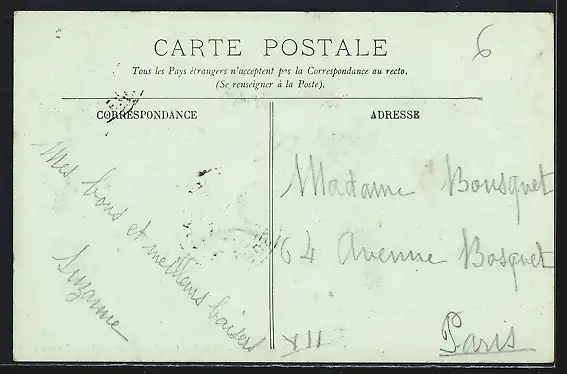 6
CARTE POSTALE
Tous les Pays étrangers n'acceptent pas la Correspondance au recto.
(Se renseigner à la Poste).
CORRESPONDANCE
ADRESSE
Mes bons et meilleurs baisers
Suzanne
Madame Bousquet
64 Avenue Bosquet
Paris
XII